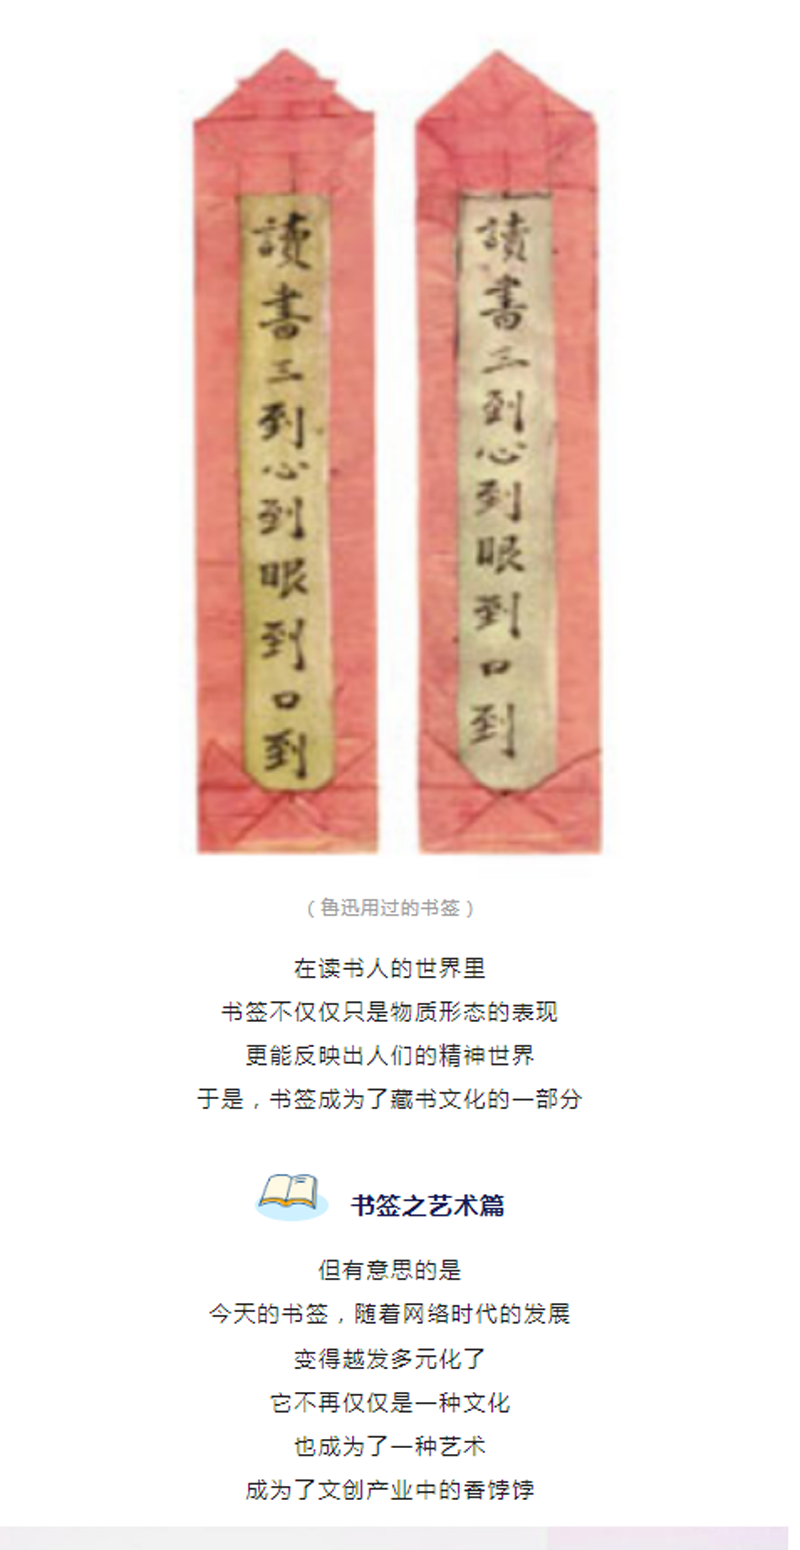 讀書三到心到眼到口到
讀書三到心到眼到口到
（鲁迅用过的书签）
在读书人的世界里
书签不仅仅只是物质形态的表现
更能反映出人们的精神世界
于是，书签成为了藏书文化的一部分
书签之艺术篇
但有意思的是
今天的书签，随着网络时代的发展
变得越发多元化了
它不再仅仅是一种文化
也成为了一种艺术
成为了文创产业中的香饽饽